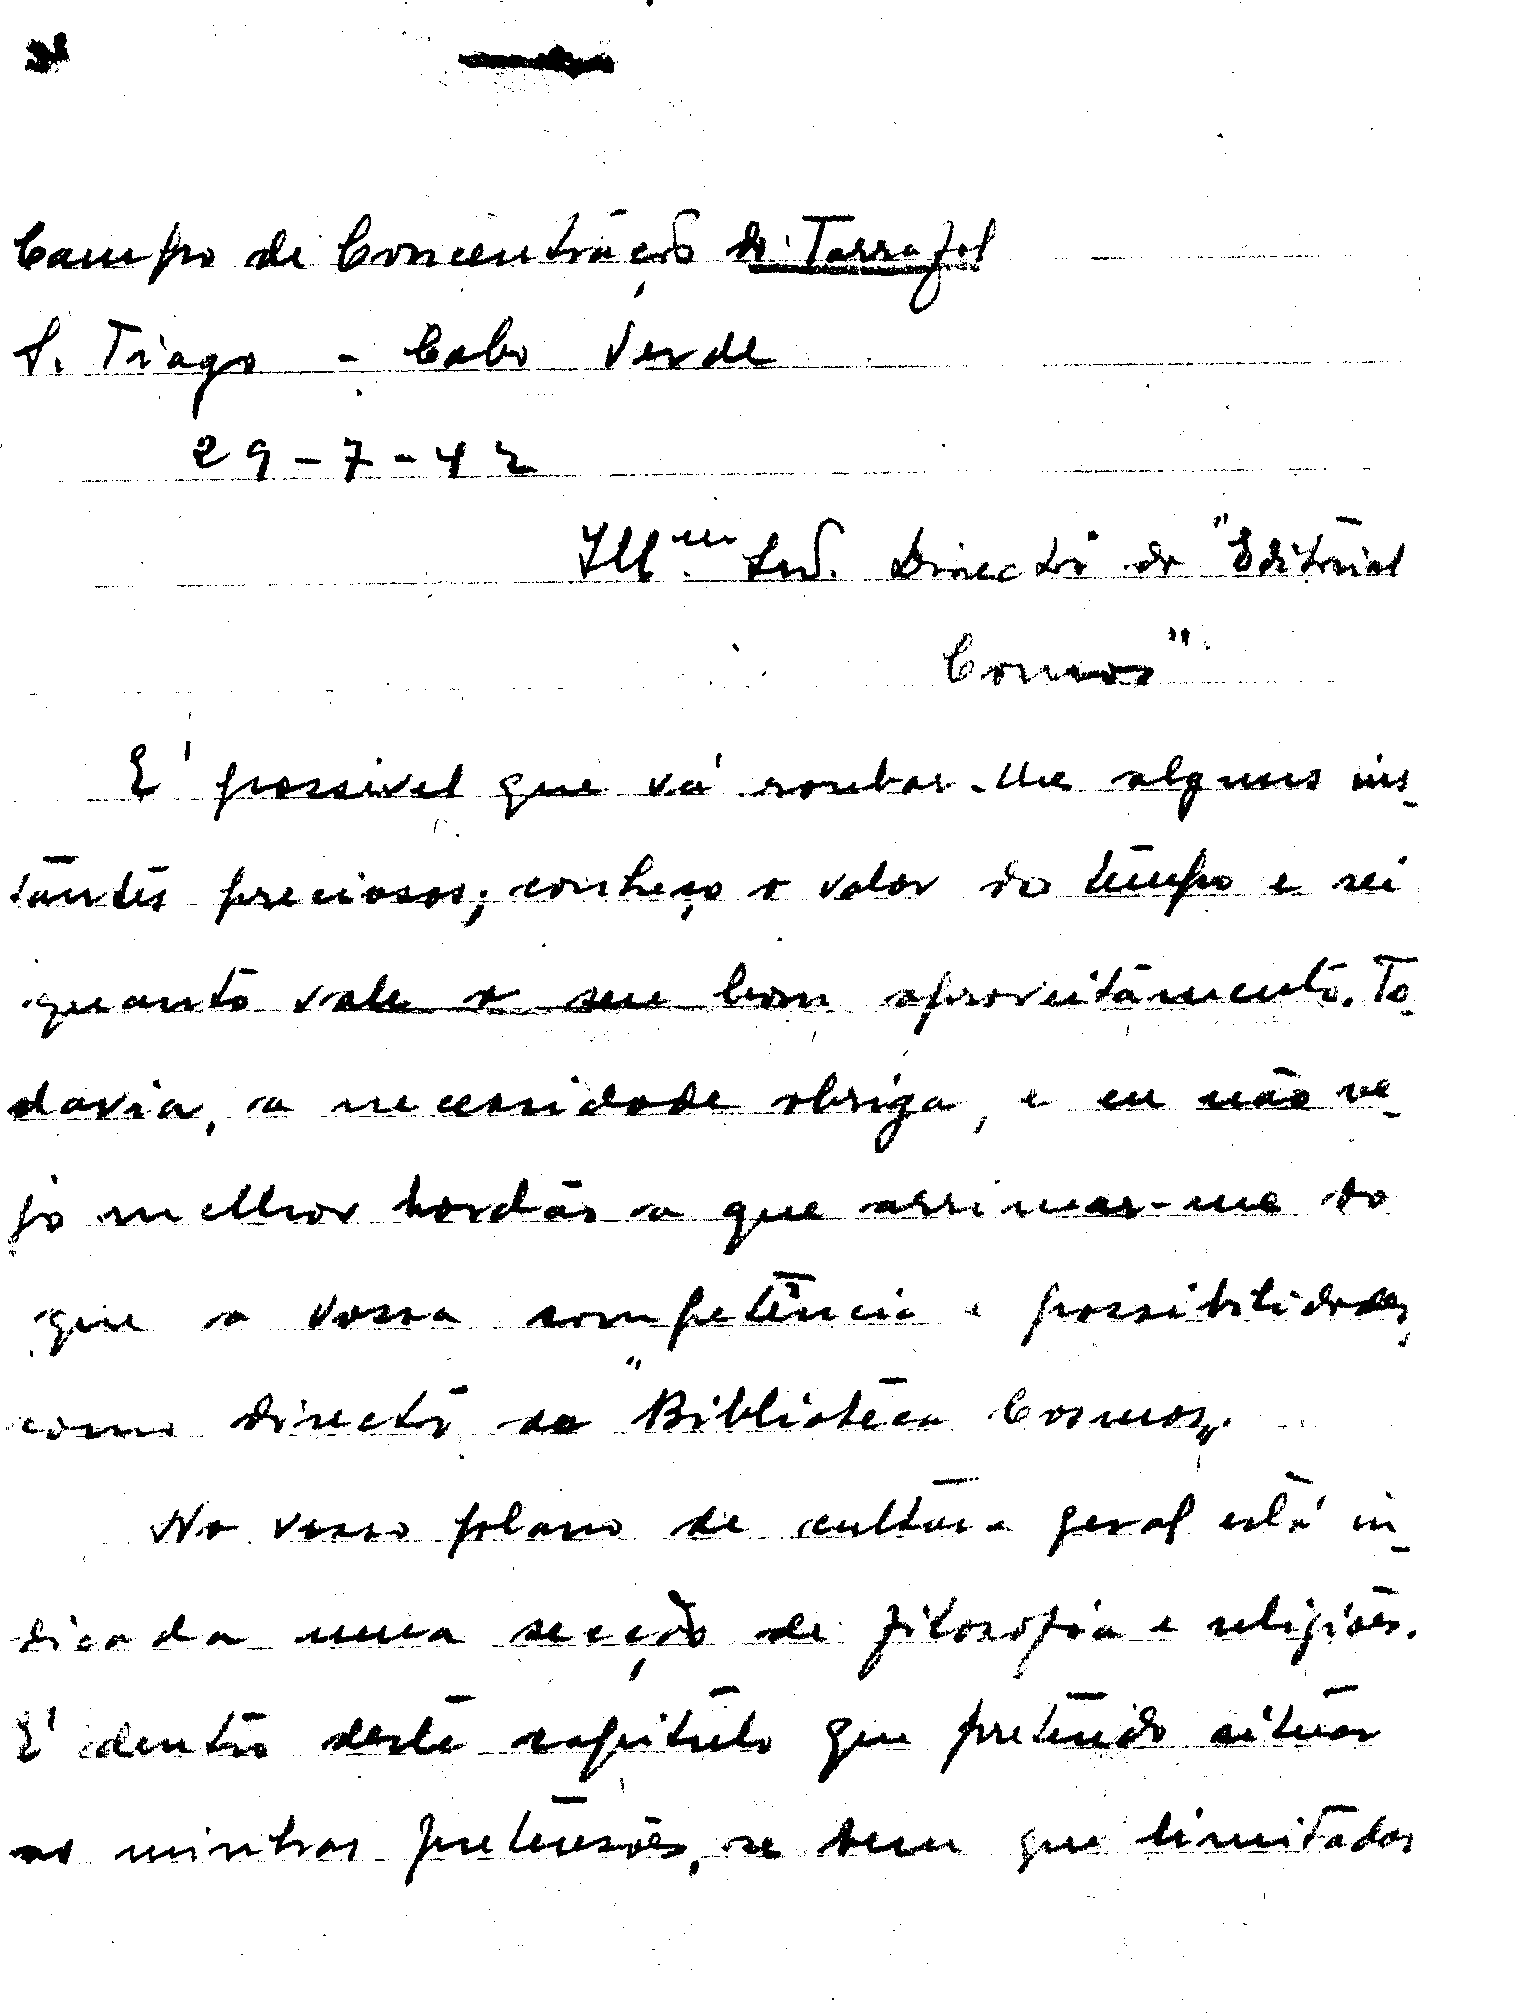 Campo de Concentração do Tarrafal
S. Tiago - Cabo Verde
29-7-42
Illmo Snr. Director da "Editorial
Cosmos"
E' possivel que vá roubar-lhe alguns ins-
tantes preciosos; conheço o valor do tempo e sei
quanto vale o seu bom aproveitamento. To-
davia, a necessidade obriga, e eu não ve-
jo melhor bordão a que arrimar-me do
que a vossa competência e possibilidades,
como director da "Biblioteca Cosmos".
No vosso plano de cultura geral está in-
dicada uma secção de filosofia e religiões.
E' dentro deste capitulo que pretendo situar
as minhas pretensões, se bem que limitadas